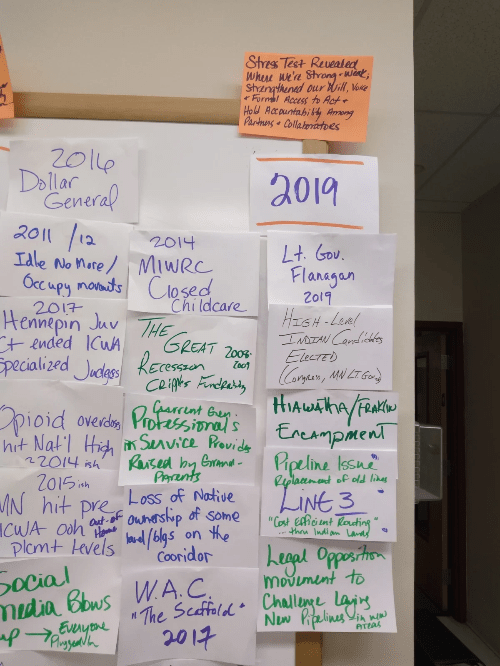 Stress Test Revealed
where we're strong + weak;
strengthened our Will, Voice
+ Formal Access to Act +
Hold Accountability Among
Partners + Collaborators
2016
Dollar
General
2011 / 12
Idle No More /
Occupy
2017
Hennepin Juv
Ct ended ICWA
Specialized Judges
Opioid overdose
hit Nat'l High
~2014 ish
2015 ish
MN hit pre
ICWA OOh out-of Home
plcmt levels
Social
media Blows
up → Everyone
2014
MIWRC
Closed
Childcare
THE
GREAT 2008-
Recession 2009
Cripples Fundraising
Current Gen.
Professional's
in Service Provider
Raised by Grand-
Parents
Loss of Native
ownership of some
land/blgs on the
Cooridor
W.A.C.
"The Scaffold"
2017
2019
Lt. Gov.
Flanagan
2019
HIGH-Level
INDIAN Candidates
ELECTED
(Congress, MN LT Gov)
HIAWATHA/FRANKLIN
Encampment
Pipeline Issue
Replacement of old lines
LINE 3
"Cost Efficient Routing"
thru Indian Lands
Legal Opposition
movement to
Challenge Laying
New Pipelines in new
Areas